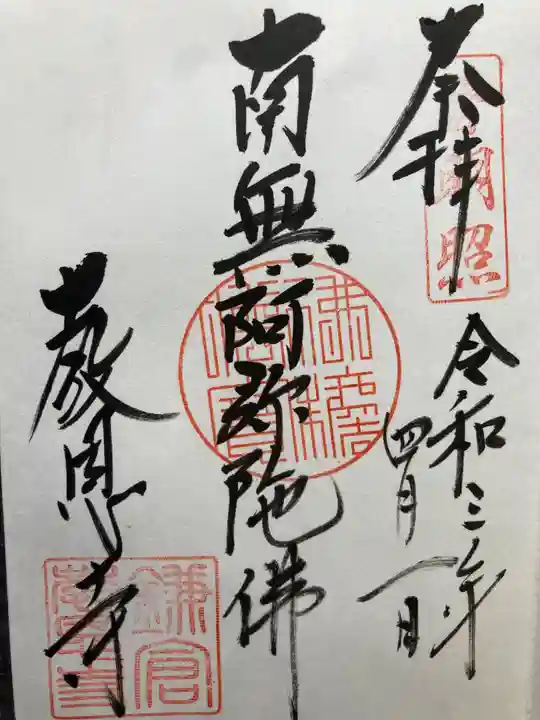 奉拝
令和三年
四月一日
南無阿弥陀佛
教恩寺
鎌倉